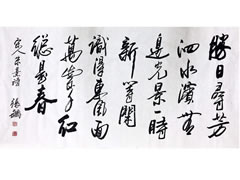 勝日尋芳
泗水濱無
邊光景一時
新等閒
識得東風面
萬紫千紅
總是春
宋人朱熹詩